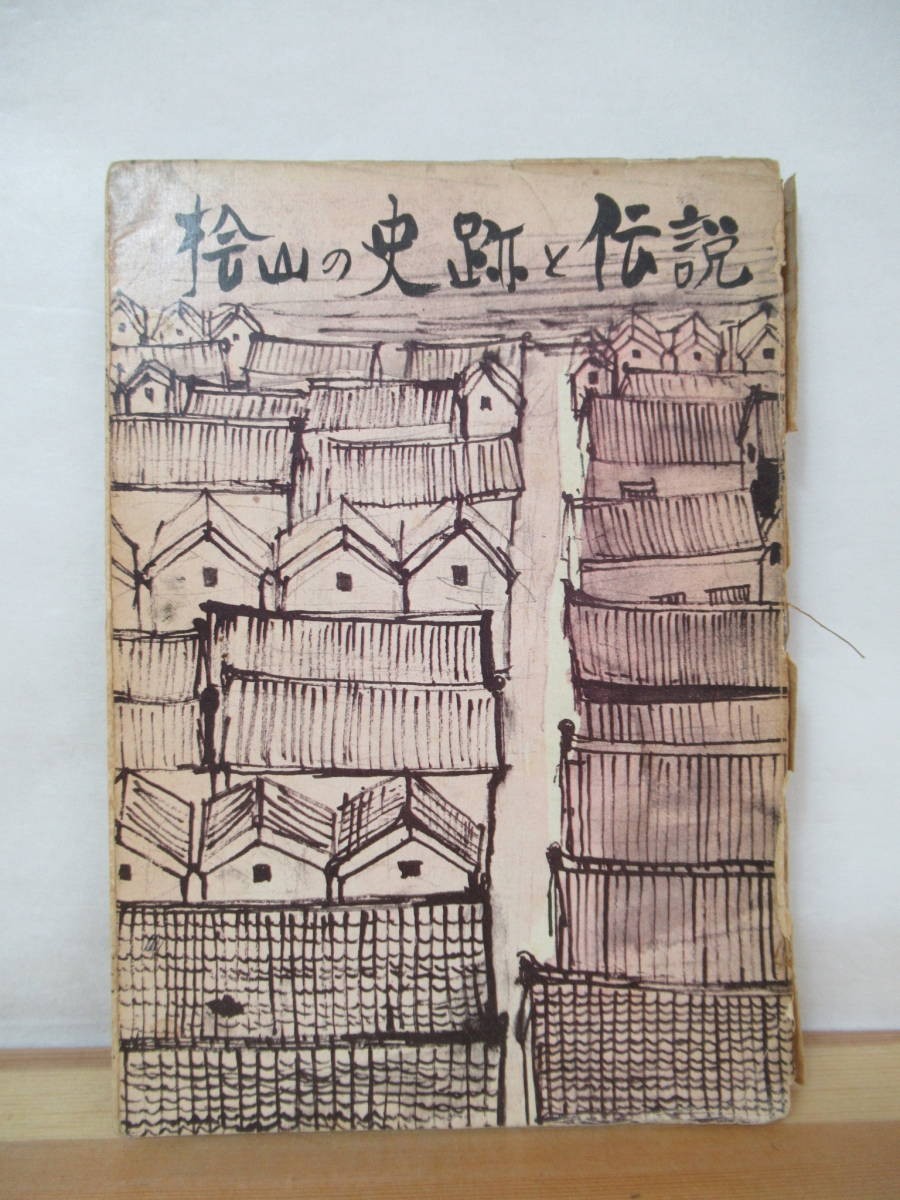 桧山の史跡と伝説